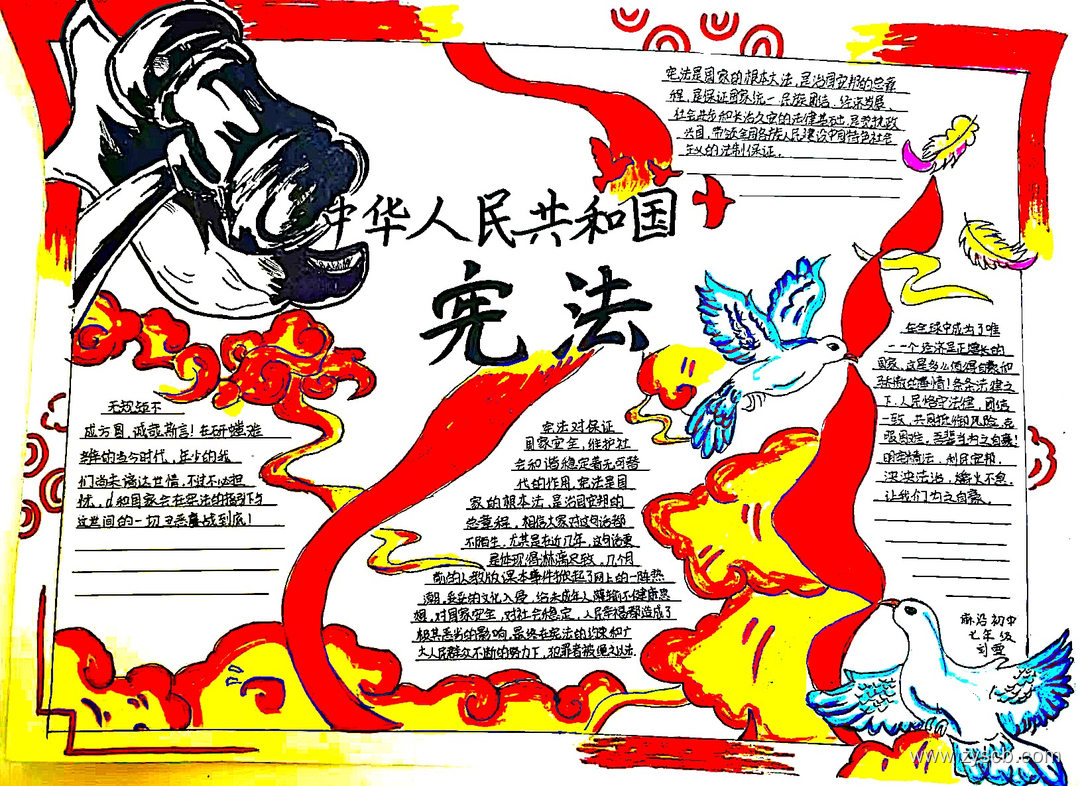 中华人民共和国
宪法
宪法是国家的根本大法,是治国安邦的总章
程,是保证国家统一、民族团结、经济发展、
社会进步和长治久安的法律基础,是党执政
兴国,带领全国各族人民建设中国特色社会
主义的法制保证。
无规矩不
成方圆,诚哉斯言!在研螳难
的当今时代,年少的我
们尚未谙达世情,不过不必担
忧,d和国家会在宪法的指引下与
这世间的一切丑恶鏖战到底!
宪法对保证
国家安全,维护社
会和谐稳定着无可替
代的作用,宪法是国
家的根本法,是治国安邦的
总章程,相信大家对这句话都
不陌生,尤其是在近几年,这句话更
是体现得淋漓尽致,几个月
前的人教版课本事件掀起了网上的一阵热
潮,妥妥的文化入侵,给未成年人输不健康思
想,对国家安全,对社会稳定,人民幸福都造成了
极其恶劣的影响,最终在宪法的约束和广
大人民群众不断的努力下,犯罪者被绳之以法.
在全球中成为了唯
一一个经济是正增长的
国家,这是多么值得自豪和
的事情!条条法律之
下,人民恪守法律,团结
一致,共同抵御风险,克
服困难,吾辈当为之自豪!
明宪慎法,利民安邦,
泱泱法治,熵火不息,
让我们为之自豪。
麻沿初中
七年级
刘雪
www.zyscb.com